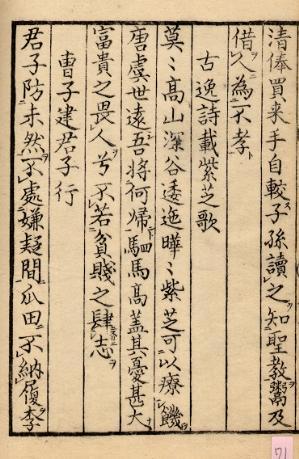 清俸買来手自較子孫讀之知聖教鬻及
借人為不孝
古逸詩載紫芝歌
莫〻高山深谷逶迤曄〻紫芝可以療饑
唐虞世遠吾將何歸駟馬高蓋其憂甚大
富貴之畏人兮不若貧賤之肆志
曹子建君子行
君子防未然不處嫌疑間瓜田不納履李
71